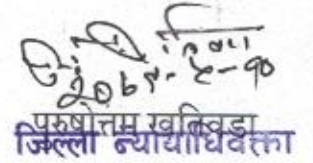 २०७९-८-१०
पुरुषोत्तम खतिवडा
जिल्ला न्यायाधिवक्ता